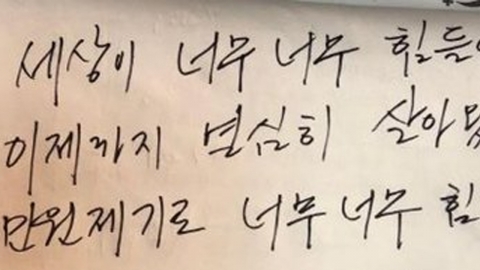 세상이 너무 너무 힘들
이제까지 열심히 살아
만원제기로 너무 너무 힘